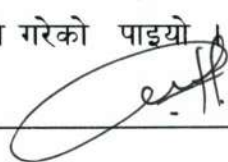 गरेको पाइयो ।